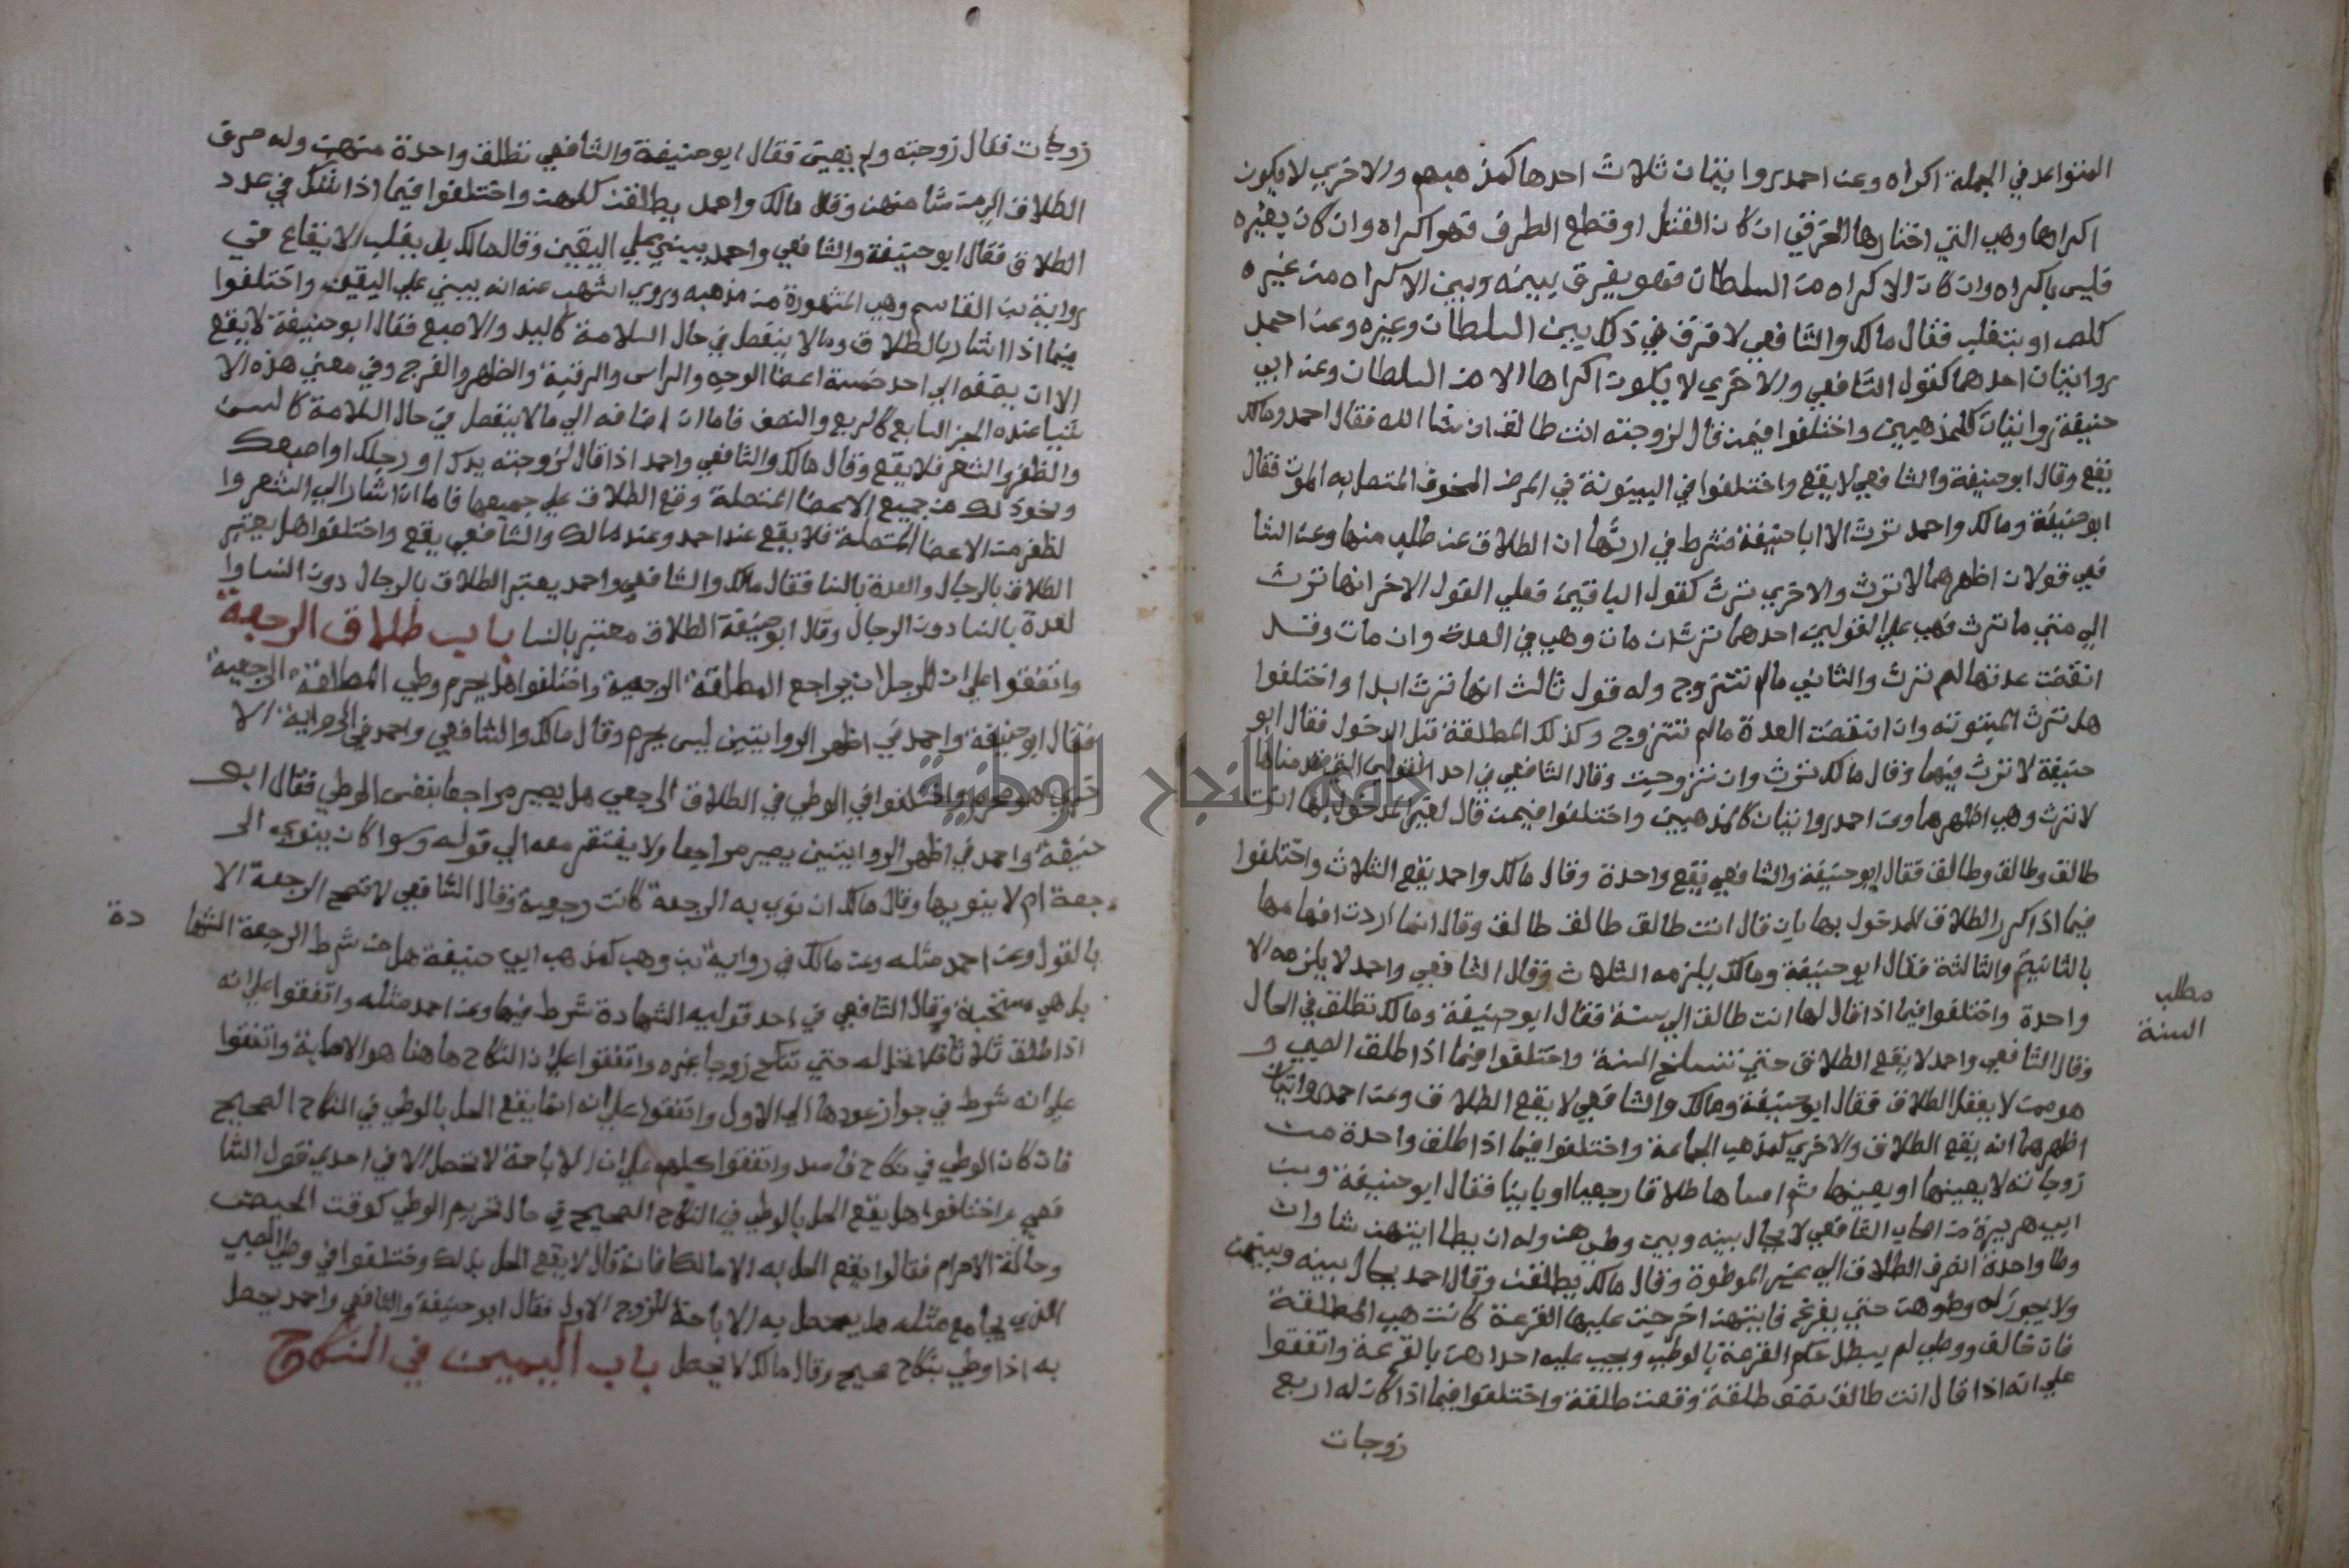 المتواعد في الجملة اكراه وعن احمد روايتان ثلاث احدها كمذهبهم والاخري لا يكون
اكراها وهي التي اختارها الخرقي ان كان القتل او قطع الطرف فهو اكراه وان كان بغيره
فليس باكراه وان كان الاكراه من السلطان فهو يفرق بينه وبين الاكراه من غيره
كلص او متغلب فقال مالك والشافعي لا فرق في ذلك بين السلطان وغيره وعن احمد
روايتان احدهما كقول الشافعي والاخري لا يكون اكراها الا من السلطان وعن ابي
حنيفة روايتان كالمذهبين واختلفوا فيمن قال لزوجته انت طالق ان شا الله فقال احمد ومالك
يقع وقال ابو حنيفة والشافعي لا يقع واختلفوا في البينونة في المرض المخوف المتصل به الموت فقال
ابو حنيفة ومالك واحمد ترث الا ابا حنيفة فشرط في ارثها ان الطلاق عن طلب منها وعن الشا
فعي قولان اظهرهما لا ترث والاخري ترث كقول الباقين فعلي القول الاخر انها ترث
الي متي ما ترث فهي علي القولين احدهما ترث ان مات وهي في العدة وان مات وقد
انقضت عدتها لم ترث والثاني ما لم تتزوج وله قول ثالث انها ترث ابدا واختلفوا
هل ترث المبتوتة وان انقضت العدة مالم تتزوج وكذلك المطلقة قبل الدخول فقال ابو
حنيفة لا ترث فيهما وقال مالك ترث وان تزوجت وقال الشافعي في احد القولين التي قدمناها
لا ترث وهي اظهرهما وعن احمد روايتان كالمذهبين واختلفوا فيمن قال لغير مدخول بها انت
طالق وطالق وطالق فقال ابو حنيفة والشافعي يقع واحدة وقال مالك واحمد يقع الثلاث واختلفوا
فيما اذا كرر الطلاق للمدخول بها بان قال انت طالق طالق طالق وقال انما اردت افهامها
بالثانية والثالثة فقال ابو حنيفة ومالك يلزمه الثلاث وقال الشافعي واحمد لا يلزمه الا
واحدة واختلفوا فيما اذا قال لها انت طالق الي سنة فقال ابو حنيفة ومالك تطلق في الحال
وقال الشافعي واحمد لا يقع الطلاق حتي تنسلخ السنة واختلفوا فيما اذا طلق الصبي و
هو ممن لا يعقل الطلاق فقال ابو حنيفة ومالك والشافعي لا يقع الطلاق وعن احمد روايتان
اظهرهما انه يقع الطلاق والاخري كمذهب الجماعة واختلفوا فيما اذا طلق واحدة من
زوجاته لا بعينها او بعينها ثم انساها طلاقا رجعيا او باينا فقال ابو حنيفة وبن
ابي هريرة من اصحاب الشافعي لا يحال بينه وبين وطيهن وله ان يطا ايتهن شا وان
وطا واحدة انصرف الطلاق الي غير الموطوة وقال مالك يطلقن وقال احمد يحال بينه وبينهن
ولا يجوز له وطوهن حتي يقرع فايتهن اخرجت عليها القرعة كانت هي المطلقة
فان خالف ووطي لم يبطل حكم القرعة بالوطي ويجب عليه احداهن بالقرعة واتفقوا
علي انه اذا قال انت طالق نصف طلقة وقعت طلقة واختلفوا فيما اذا كان له اربع
زوجات
مطلب
السنة
زوجات فقال زوجته ولم يعين فقال ابو حنيفة والشافعي تطلق واحدة منهن وله صرف
الطلاق الي من شا منهن وقال مالك واحمد يطلقن كلهن واختلفوا فيما اذا شك في عدد
الطلاق فقال ابو حنيفة والشافعي واحمد يبني علي اليقين وقال مالك بل يغلب الايقاع في
رواية بن القاسم وهي المشهورة من مذهبه وروي اشهب عنه انه يبني علي اليقين واختلفوا
فيما اذا اشار بالطلاق وما لا ينفصل في حال السلامة كاليد والاصبع فقال ابو حنيفة لا يقع
الا ان يضفه الي احد خمسة اعضا الوجه والراس والرقبة والظهر والفرج وفي معني هذه الا
شيا عنده الجز الشايع كالربع والنصف فاما ان اضافه الي مالا ينفصل في حال السلامة كالسن
والظفر والشعر فلا يقع وقال مالك والشافعي واحمد اذا قال لزوجته يدك او رجلك او اصبعك
ونحو ذلك من جميع الاعضا المتصلة وقع الطلاق علي جميعها فاما ان اشار الي الشعر وا
لظفر من الاعضا المتصلة فلا يقع عند احمد وعند مالك والشافعي يقع واختلفوا هل يعتبر
الطلاق بالرجال والعدة بالنسا فقال مالك والشافعي واحمد يعتبر الطلاق بالرجال دون النسا وا
لعدة بالنسا دون الرجال وقال ابو حنيفة الطلاق معتبر بالنسا باب طلاق الرجعة
واتفقوا علي ان للرجل ان يراجع المطلقة الرجعية واختلفوا هل يحرم وطي المطلقة الرجعية
فقال ابو حنيفة واحمد في اظهر الروايتين ليس يحرم وقال مالك والشافعي واحمد في الرواية الا
خري هو محرم واختلفوا في الوطي في الطلاق الرجعي هل يصير مراجعا بنفس الوطي فقال ابو
حنيفة واحمد في اظهر الروايتين يصير مراجعا ولا يفتقر معه الي قوله وسوا كان ينوي الر
جعة ام لا ينويها وقال مالك ان نوي به الرجعة كانت رجعية وقال الشافعي لا تصح الرجعة الا
بالقول وعن احمد مثله وعن مالك في رواية بن وهب كمذهب ابي حنيفة هل من شرط الرجعة الشها دة
بل هي مستحبة وقال الشافعي في احد قوليه الشهادة شرط فيها وعن احمد مثله واتفقوا علي انه
اذا طلق ثلاثا فلا تحل له حتي تنكح زوجا غيره واتفقوا علي ان النكاح هاهنا هو الاصابة واتفقوا
علي انه شرط في جواز عودها الي الاول واتفقوا علي انه انما يقع الحل بالوطي في النكاح الصحيح
فان كان الوطي في نكاح فاسد واتفقوا كلهم علي ان الاباحة لا تحصل الا في احدي قول الشا
فعي واختلفوا هل يقع الحل بالوطي في النكاح الصحيح في حال تحريم الوطي كوقت الحيض
وحالة الاحرام فقالوا يقع الحل به الا مالكا فانه قال لا يقع الحل بذلك وختلفوا في وطي الصبي
الذي يجامع مثله هل يحصل به الاباحة للزوج الاول فقال ابو حنيفة والشافعي واحمد يحصل
به اذا وطي بنكاح صحيح وقال مالك لا يحصل باب اليمين في النكاح
جامعة النجاح الوطنية